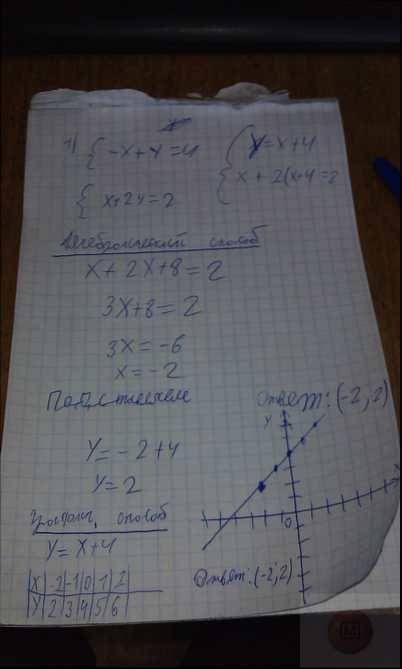 1) { -x+y=4
{ x+2y=2
{ y=x+4
x+2(x+4=2
Алгебраический способ
x+2x+8=2
3x+8=2
3x=-6
x=-2
Подставляем
y=-2+4
y=2
Ответ: (-2;2)
способ
y=x+4
x|-2|-1|0|1|2
y|2|3|4|5|6
y
x
0
Ответ: (-2;2)